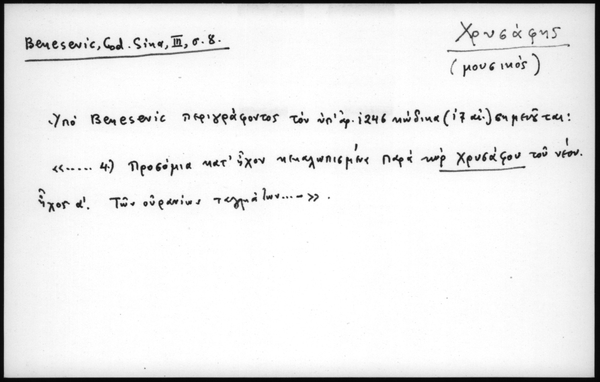 Benesevic, Cod. Sina, III, σ. 8.
Χρυσάφης
(μουσικός)
Ὑπό Benesevic περιγράφοντος τόν ὑπ' ἀρ. 1246 κώδικα (17 αἰ.) σημειοῦται:
«..... 4.) Προσόμια κατ' ἦχον κεκαλωπισμένα παρά κύρ Χρυσάφου τοῦ νέου.
Ἦχος α'. Τῶν οὐρανίων ταγμάτων....».